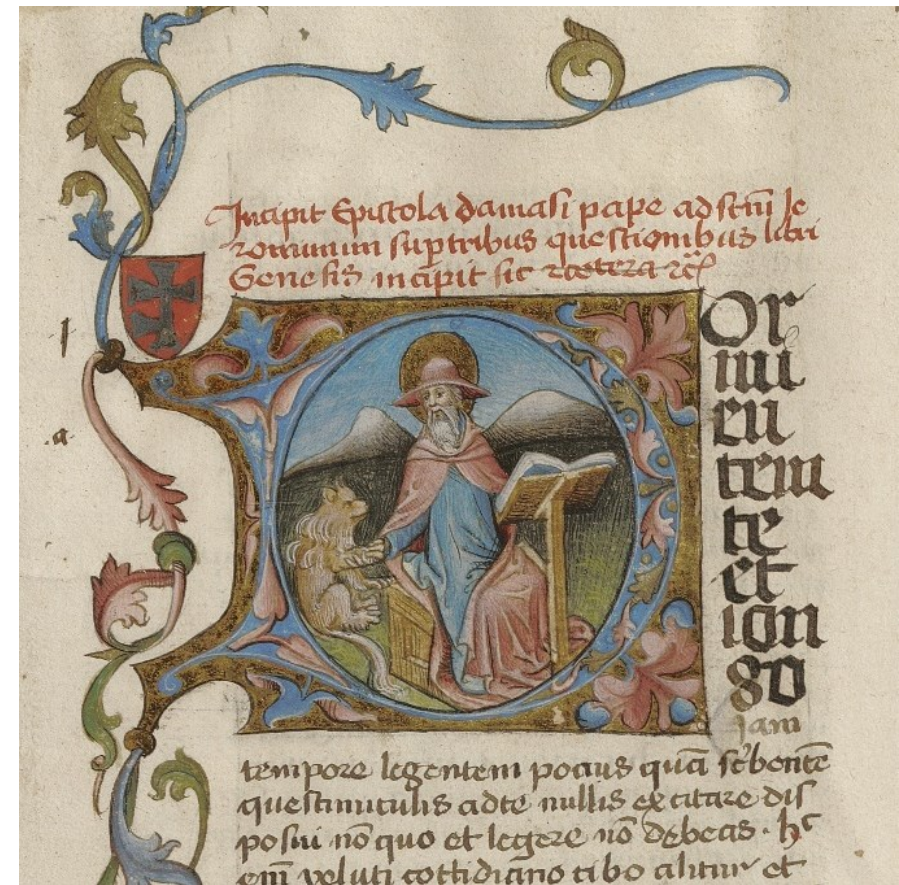 Incipit Epistola damasi pape ad sctm̄ Je
ronimum sup tribus questionibus libri
Genesis incipit sic & cetera &c
l
a
Dor
mi
en
tem
te
et
lon
go
jam
tempore legentem pocius quā sc̄bentē
questiunculis ad te nullis excitare dis
posui nō quo et legere nō debeas . hc
em̄ veluti cottidiano cibo alitur et